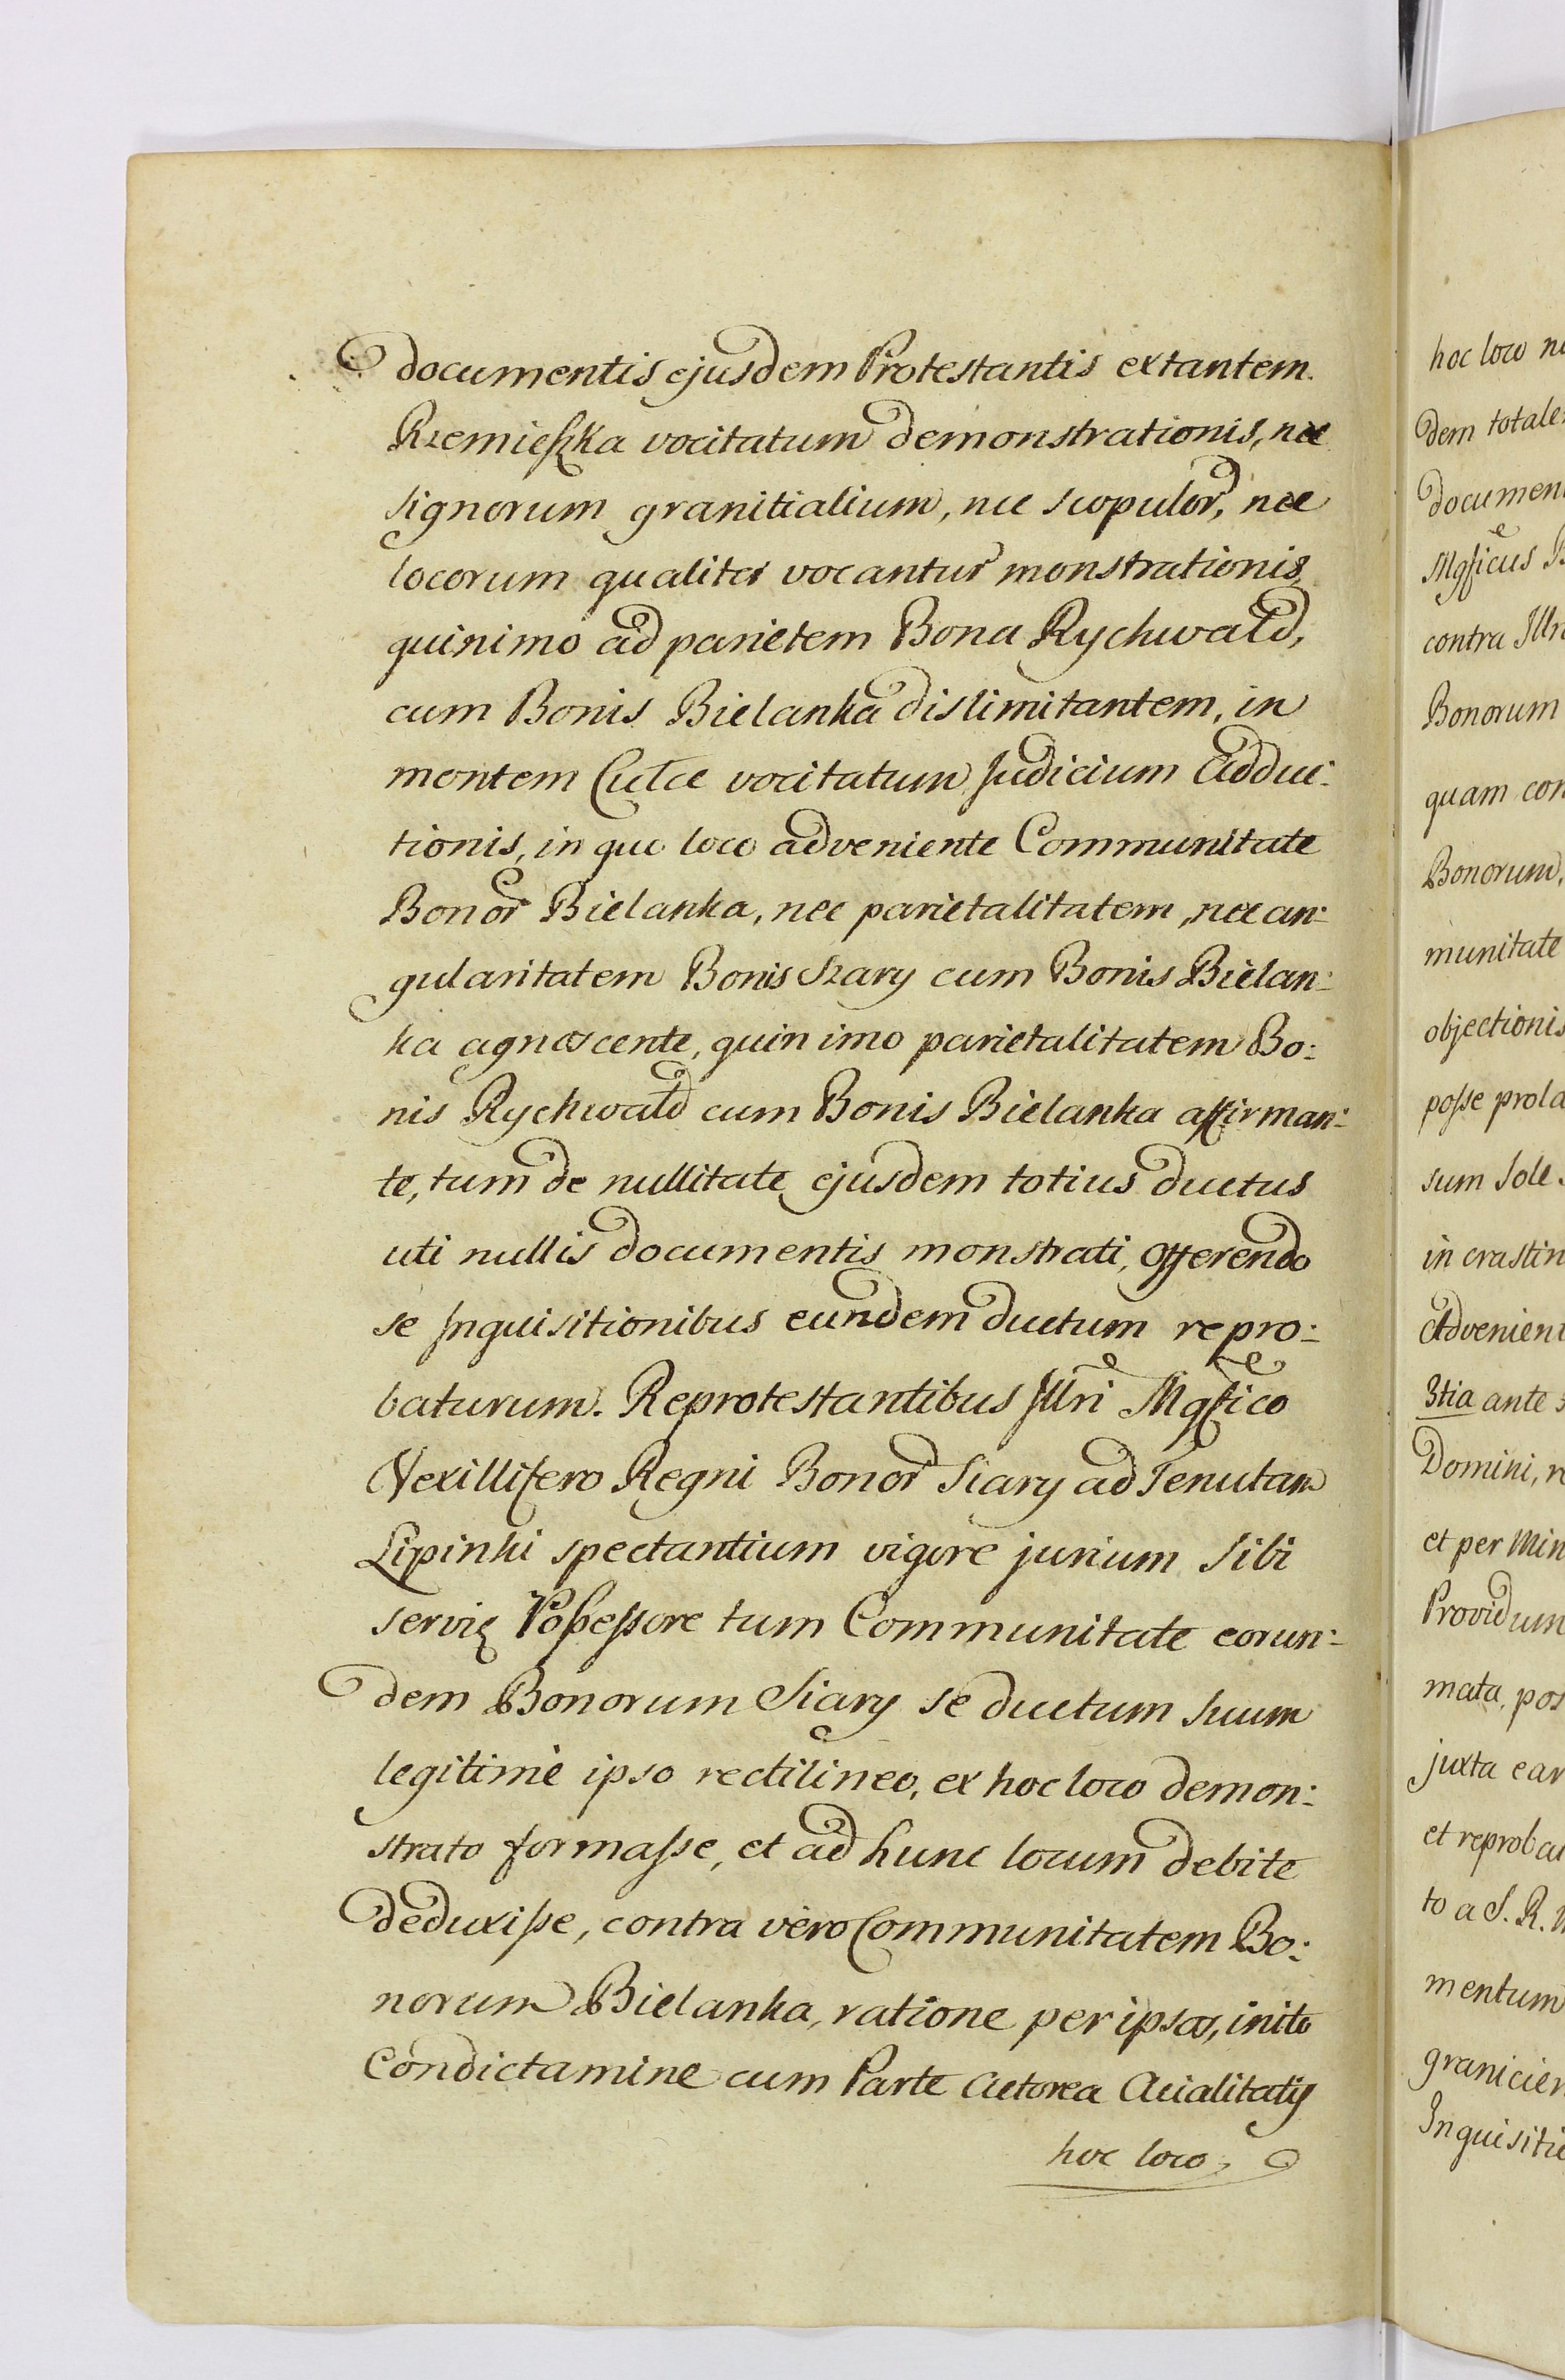 documentis ejusdem Protestantis extantem.
Rzemieszka vocitatum demonstrationis, nec
signorum granitialium, nec scopulor, nec
locorum qualiter vocantur monstrationis,
quinimo ad parietem Bona Rychwald,
cum Bonis Bielanka dislimitantem, in
montem vocitatum Judicium adduc:
tionis, in quo loco adveniente Communitate
Bonor Bielanka, nec parietalitatem, nec an:
gularitatem Bonis Szary cum Bonis Bielan:
ka agnoscente, quin imo parietalitatem Bo:
nis Rychwald cum Bonis Bielanka affirman:
te, tum de nullitate ejusdem totius ductus
uti nullis documentis monstrati, offerendo
se Inquisitionibus eundem ductum repro:
baturum. Reprotestantibus Illri Mgfico
Vexillifero Regni Bonor Siary ad Tenutam
Lipinki spectantium vigore jurium sibi
servien Possessore tum Communitate eorun:
dem Bonorum Siary se ductum suum
legitimè ipso rectilineo, ex hoc loco demon:
strato formasse, et ad hunc locum debite
deduxisse, contra vero Communitatem Bo:
norum Bielanka, ratione per ipsos, inito
Condictamine cum Parte Actorea Acialitatis
hoc loco
hoc loco
dem
Mgficus
contra
Bonorum
quam
Bonorum,
munitate
objectionis
posse
sum
in
3tia ante
Domini,
et per
Providum
mata,
juxta
to a S. R.
mentum